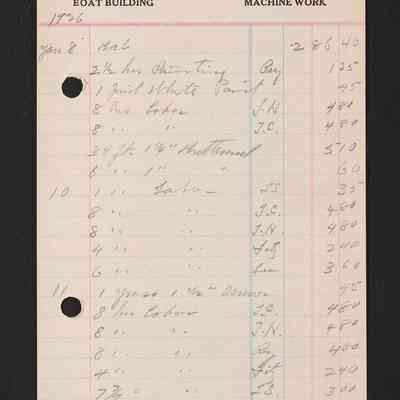 BOAT BUILDING MACHINE WORK
1926
Jan 8 Bal 286 40
2½ hrs Painting Ray 1 25
1 Pint White Paint 45
8 hrs Labor J.H. 4 80
8 " " J.C. 4 80
34 ft. 1¼" Butternut 5 10
6 " 1" " 60
10 1 " Labor 35
8 " " J.C. 4 80
8 " " J.H. 4 80
4 " " 2 40
6 " " 3 60
11 1 Gross 45
8 hrs Labor J.C. 4 80
8 " " J.H. 4 80
8 " " Ray 4 00
4 " " 2 40
7 " " 3 00